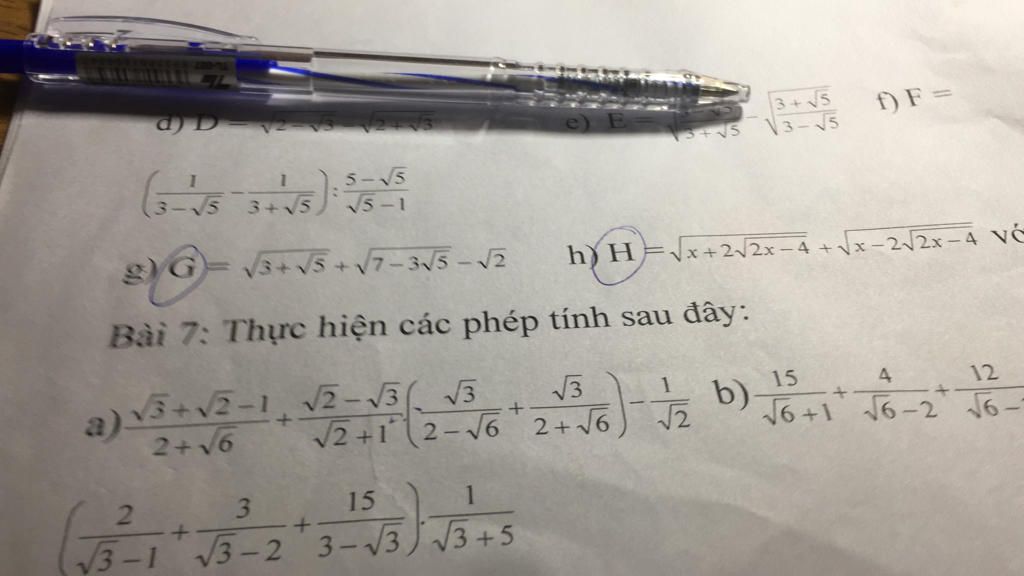 d) D = √2−√3 − √2+√3 e) E = √(3−√5)/(3+√5) − √(3+√5)/(3−√5) f) F =
(1/(3−√5) − 1/(3+√5)) : (5−√5)/(√5−1)
g) G = √(3+√5) + √(7−3√5) − √2 h) H = √(x+2√(2x−4)) + √(x−2√(2x−4))
Bài 7: Thực hiện các phép tính sau đây:
a) (√3+√2−1)/(2+√6) + (√2−√3)/(√2+1) . (√3/(2−√6) + √3/(2+√6)) − 1/√2 b) 15/(√6+1) + 4/(√6−2) + 12/(√6−
(2/(√3−1) + 3/(√3−2) + 15/(3−√3)) . 1/(√3+5)